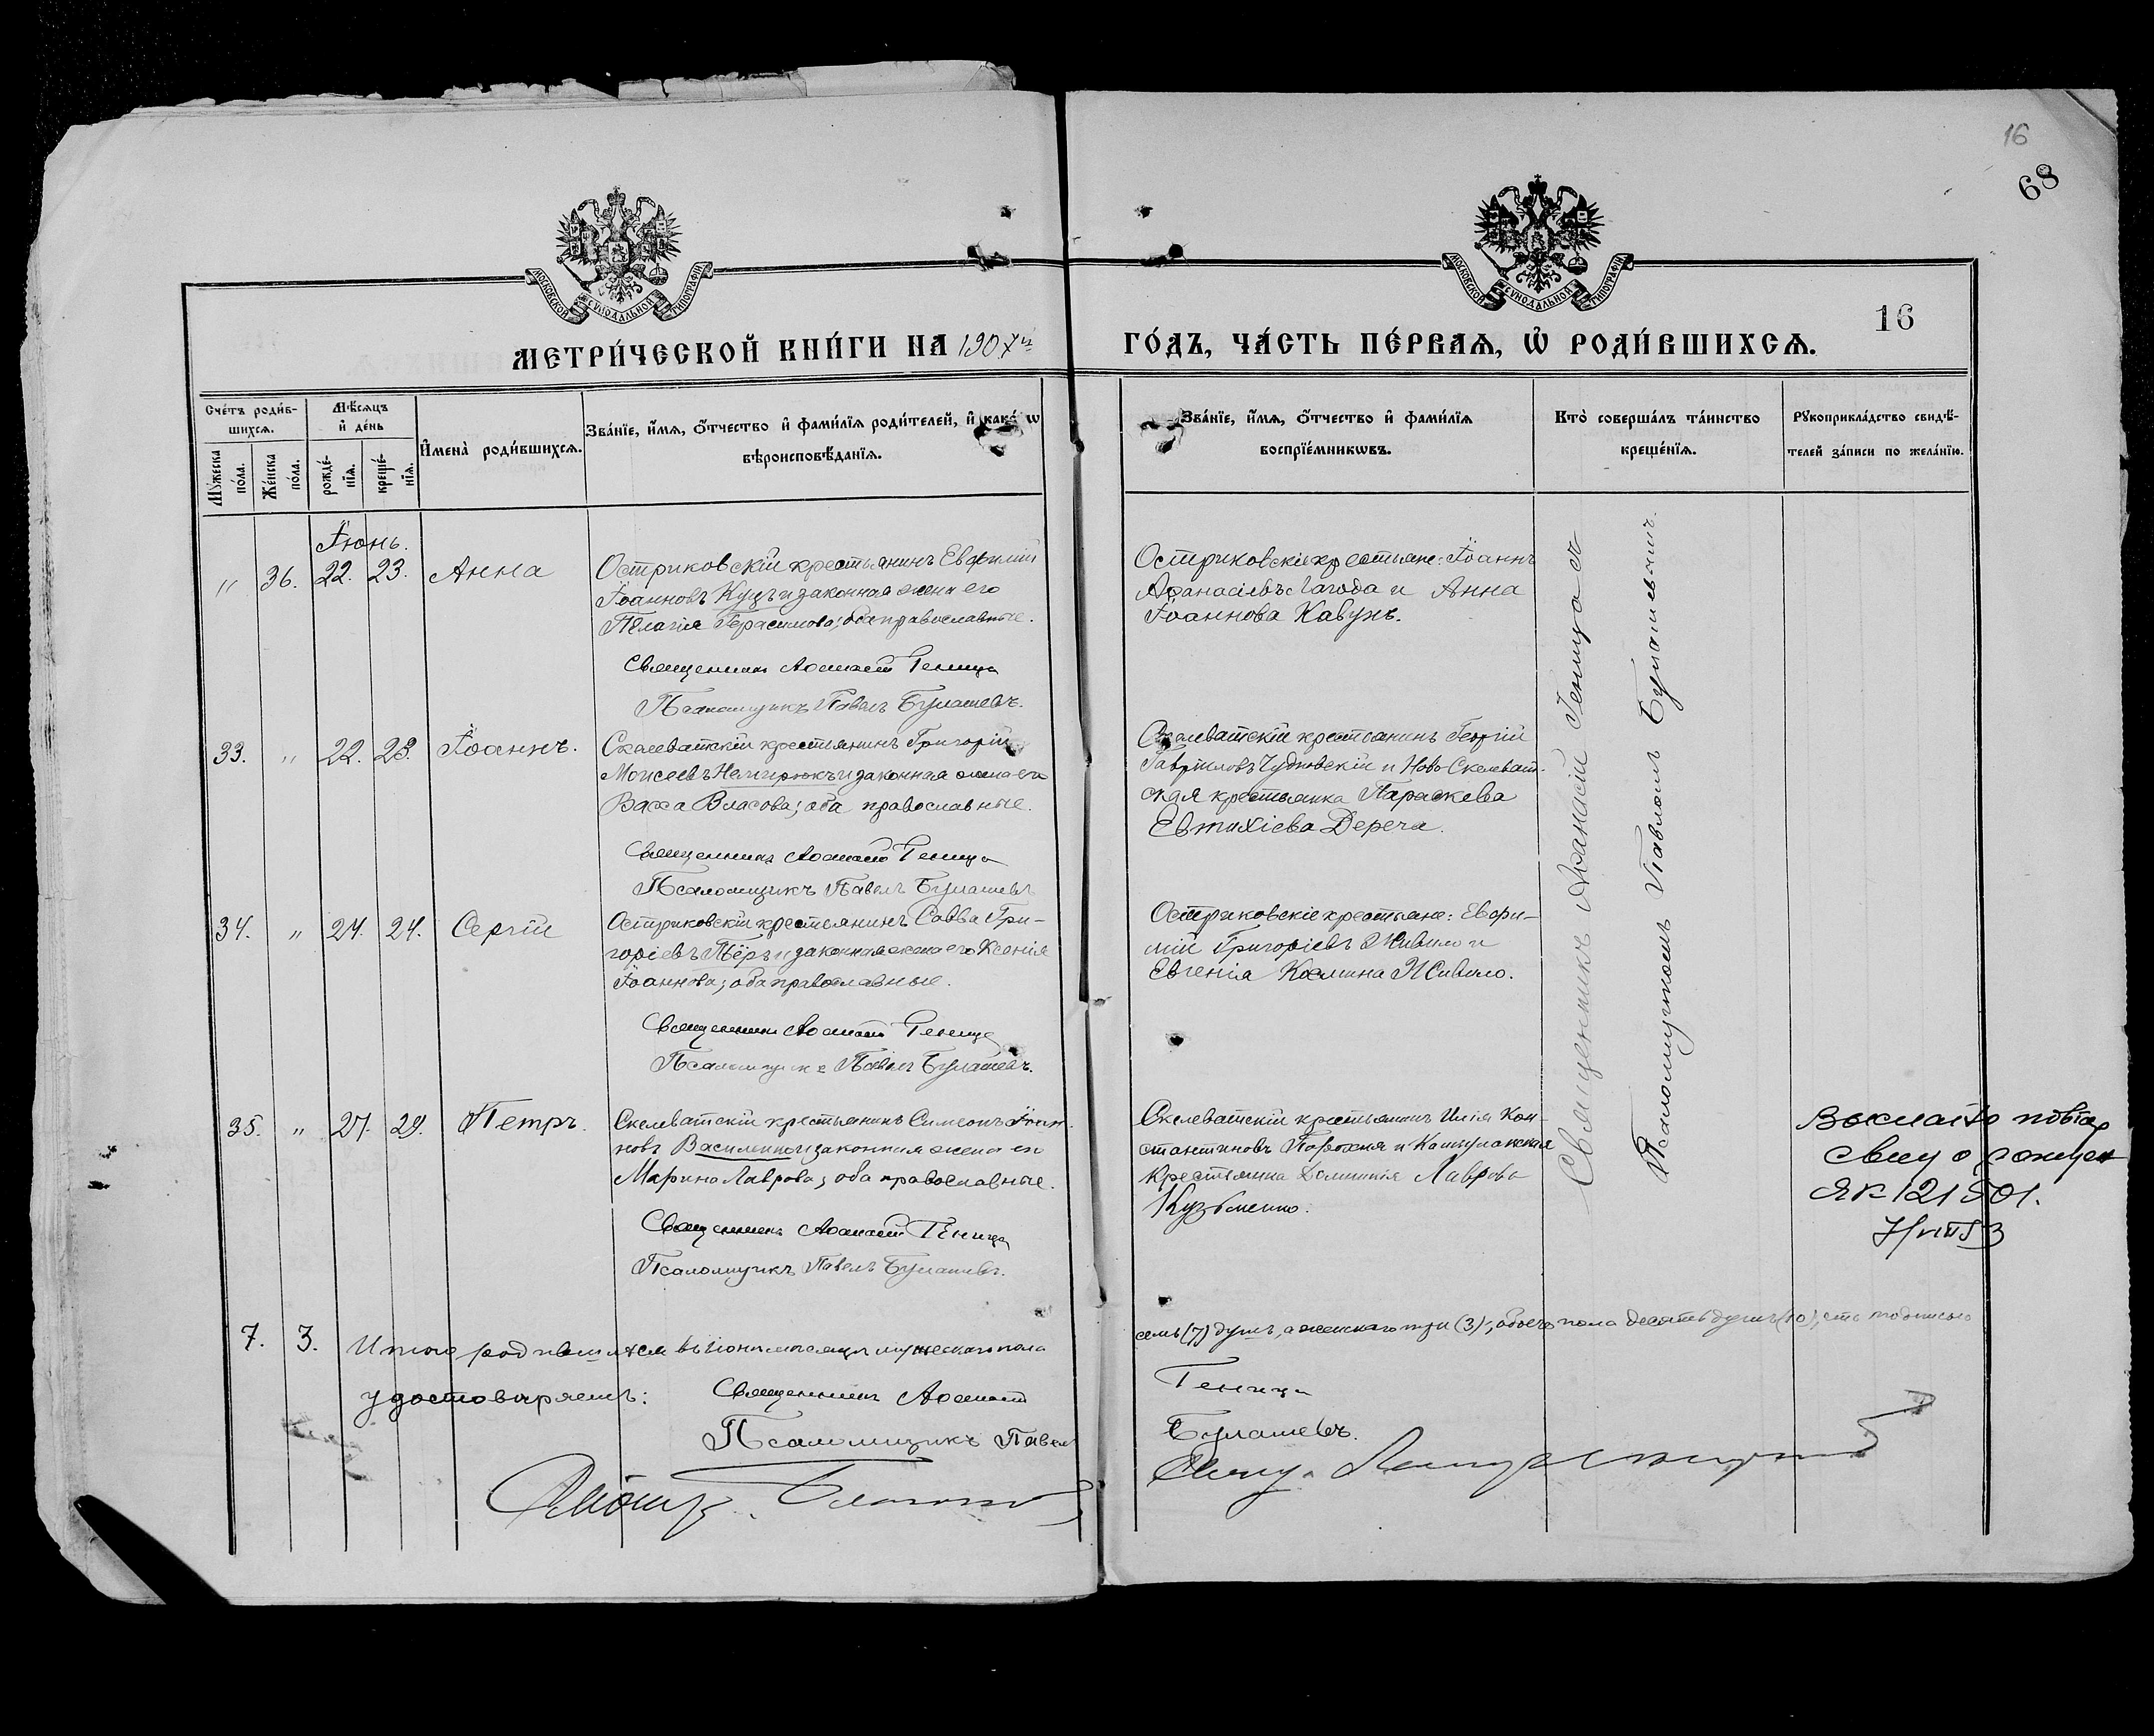 16
68
МОСКОВСКОЙ СѴНОДАЛЬНОЙ ТИПОГРАФІИ
МОСКОВСКОЙ СѴНОДАЛЬНОЙ ТИПОГРАФІИ
16
МЕТРИ́ЧЕСКОЙ КНИ́ГИ НА 1907й ГО́ДЪ, ЧА́СТЬ ПЕ́РВАѦ, Ѡ҆ РОДИ́ВШИХСѦ.
Сче́тъ роди́в-
шихсѧ.
Мѣ́сяцъ
и҆ де́нь
И҆мена̀ роди́вшихсѧ.
Зва́нїе, и҆́мѧ, ѻ҆́тчество и҆ фами́лїѧ роди́телей, и҆ како́гѡ
вѣроисповѣ́данїѧ.
Му́жеска
по́ла.
Же́нска
по́ла.
рожде́-
нїѧ.
креще́-
нїѧ.
Зва́нїе, и҆́мѧ, ѻ҆́тчество и҆ фами́лїѧ
воспрїе́мникѡвъ.
Кто̀ соверша́лъ та́инство
креще́нїѧ.
Рꙋкоприкла́дство свидѣ́-
телей за́писи по жела́нїю.
Іюнь.
" 36. 22. 23. Анна
Остриковскій крестьянинъ Евфимій
Іоанновъ Куцъ и законная жена его
Пелагія Герасимова; оба православные.
Священникъ Аѳанасій Геница
Псаломщикъ Павелъ Булашевъ.
Остриковскіе крестьяне: Іоаннъ
Аѳанасіевъ Лагода и Анна
Іоаннова Кавунъ.
33. " 22. 23. Іоаннъ.
Скелеватскій крестьянинъ Григорій
Моисеевъ Немирюкъ и законная жена его
Васса Власова; оба православные.
Священникъ Аѳанасій Геница
Псаломщикъ Павелъ Булашевъ
Скелеватскій крестьянинъ Георгій
Гавріиловъ Чудновскій и Ново-Скелеват-
ская крестьянка Параскева
Евтихіева Дереча.
34. " 24. 24. Сергій
Остриковскій крестьянинъ Савва Гри-
горіевъ Пёръ и законная жена его Ксенія
Іоаннова; оба православные.
Священникъ Аѳанасій Геница
Псаломщикъ Павелъ Булашевъ.
Остриковскіе крестьяне: Евфи-
мій Григоріевъ Живило и
Евгенія Космина Живило.
35. " 27. 29. Петръ.
Скелеватскій крестьянинъ Симеонъ Іоан-
новъ Василенко и законная жена его
Марина Лаврова; оба православные.
Священникъ Аѳанасій Геница
Псаломщикъ Павелъ Булашевъ.
Скелеватскій крестьянинъ Илія Кон-
стантиновъ Парохня и
крестьянка Домникія Лаврова
Кузьменко.
Священникъ Аѳанасій Геница съ
Псаломщикомъ Павломъ Булашевымъ.
Выслано повтор
свид о рожден
ЯК 121501.
7. 3. Итого родившихся въ іюнѣ мѣсяцѣ мужескаго пола семь (7) душъ, а женскаго три (3); обоего пола десять душъ (10), съ подписью
удостовѣряемъ: Священникъ Аѳанасій Геница
Псаломщикъ Павелъ Булашевъ.